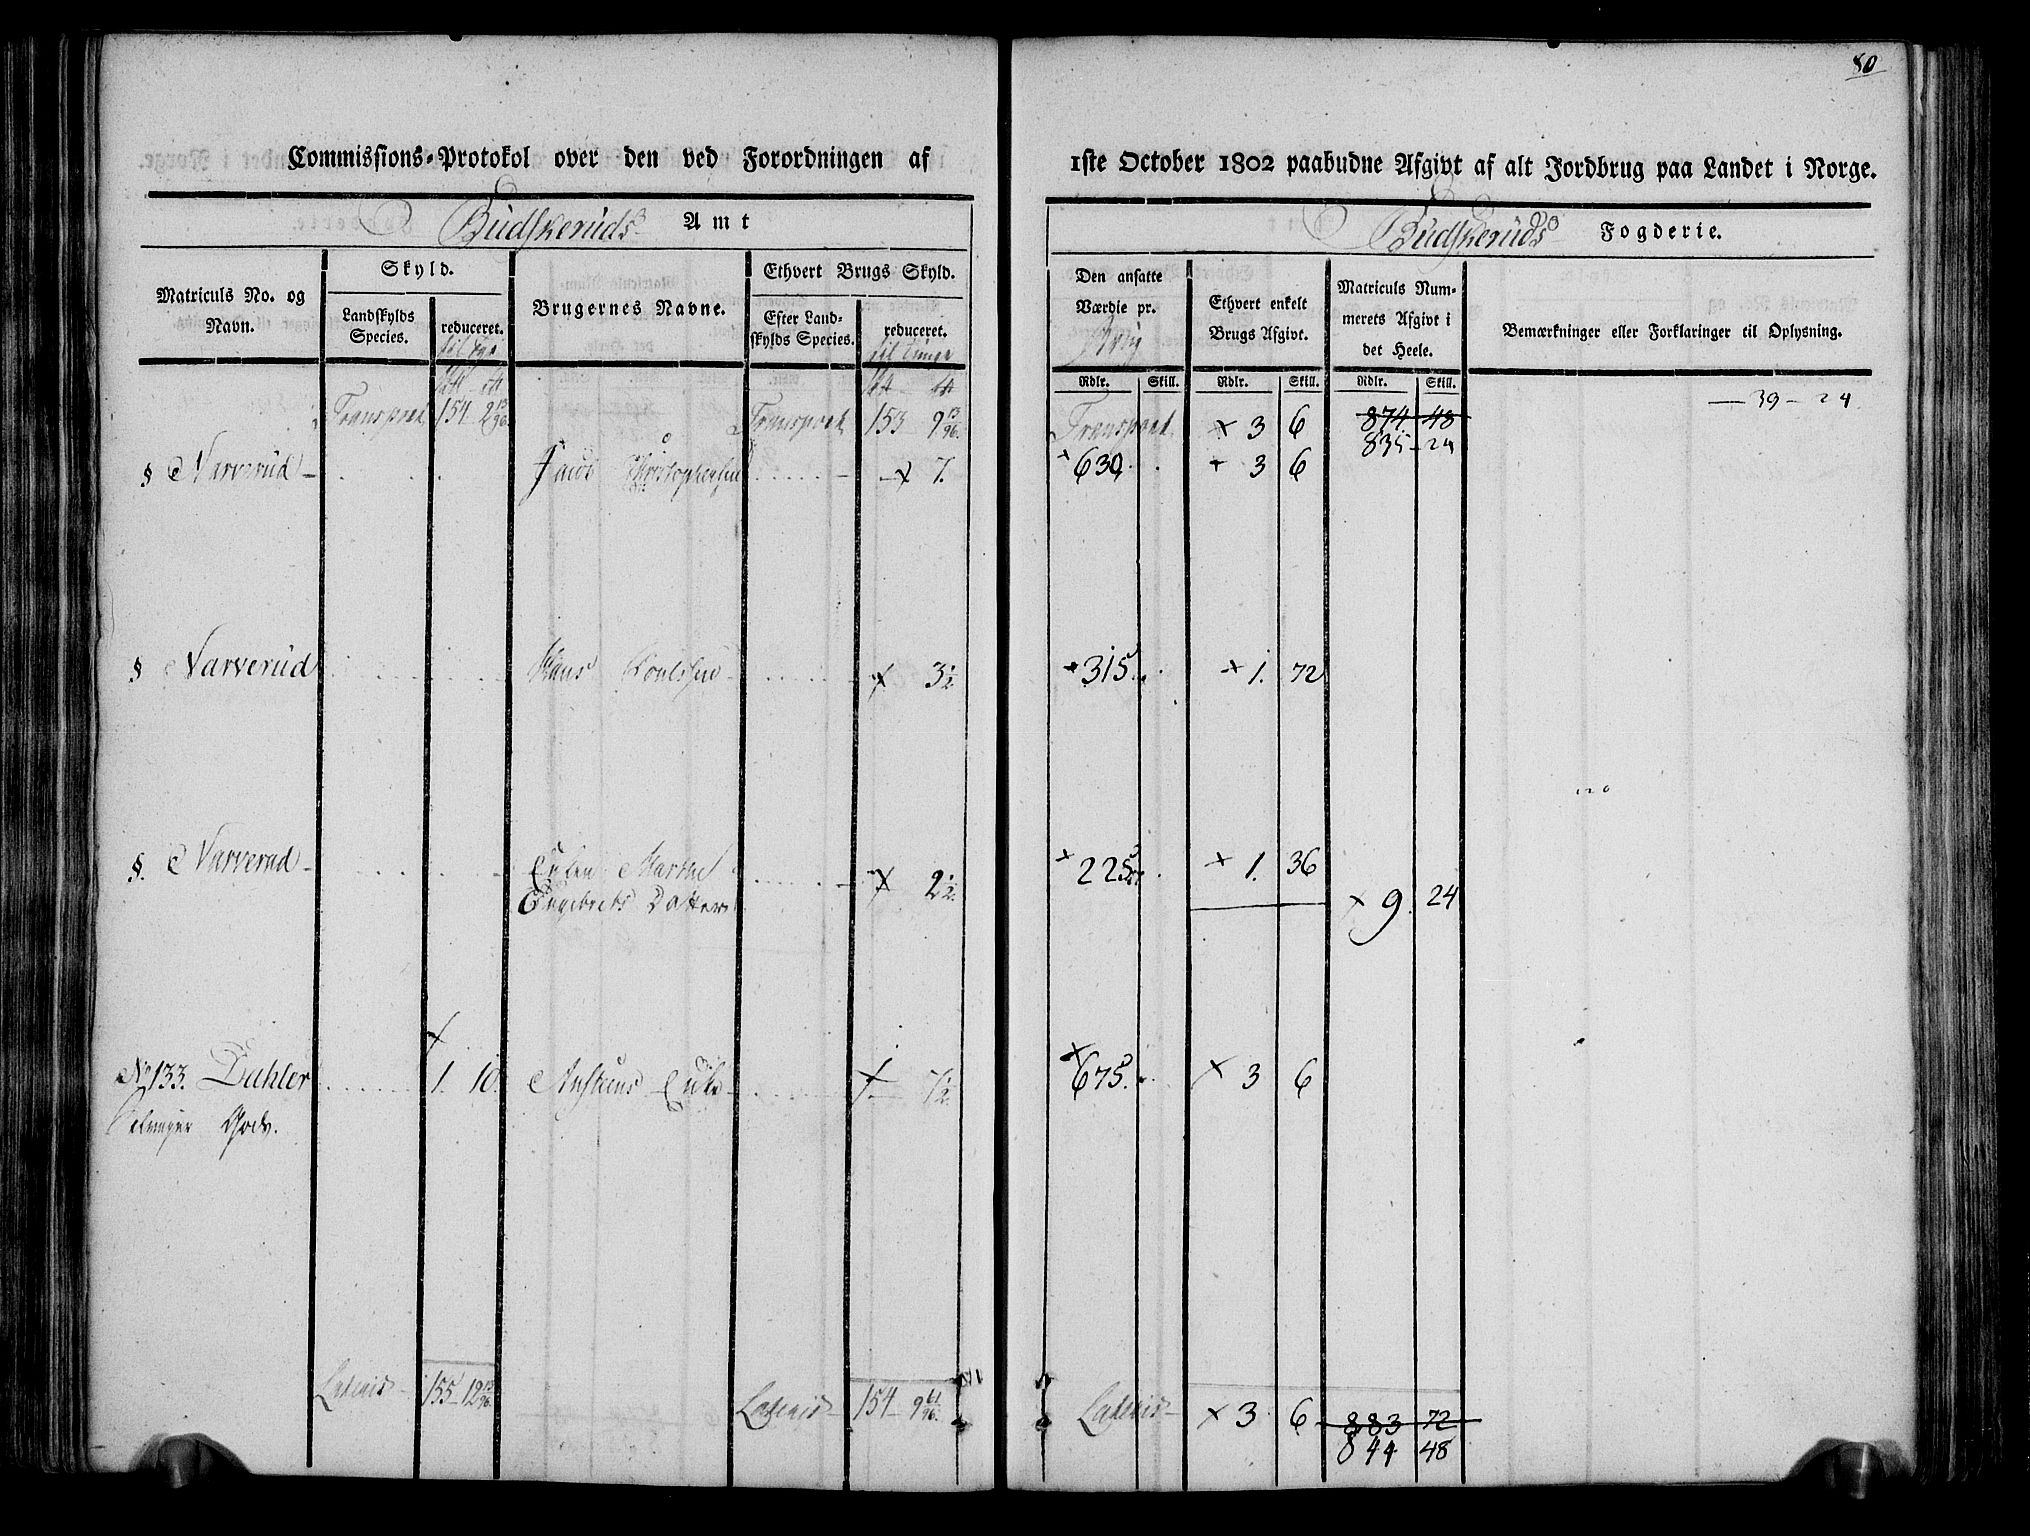 80
Commissions-Protokol over den ved Forordningen af
1ste October 1802 paabudne Afgivt af alt Jordbrug paa Landet i Norge.
Budskeruds Amt
Budskeruds Fogderie.
Matriculs No. og Navn.
Skyld.
Landskylds Species.
reduceret.
Brugernes Navne.
Ethvert Brugs Skyld.
Efter Landskylds Species.
reduceret. til Tunge
Den ansatte Værdie pr.
Ethvert enkelt Brugs Afgivt.
Matriculs Nummerets Afgivt i det Heele.
Bemærkninger eller Forklaringer til Oplysning.
Rdlr. Skill. Rdlr. Skill. Rdlr. Skill.
Transport 154 2 13/96 Transport 153 9 13/96 Transport × 3 6 874 48 — 39 - 24
835 - 24
§ Narverud — Jacob Christophersen × 7. × 630 × 3 6
§ Narverud Hans Poulsen × 3 1/2 × 315 × 1. 72
§. Narverud — Enken Marthe Engebrets Datter × 2 1/2 × 225 × 1. 36
× 9. 24
No 133. Dahler 1. 10. Austeens Enke × 1. 7 1/2 × 675. × 3 6
Gods.
Lateris 155 - 12 13/96 Lateris 154 - 9 61/96 Lateris × 3 6 883 72
844 48